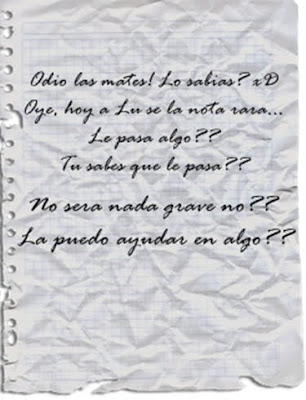 Odio las mates! Lo sabias? xD
Oye, hoy a Lu se la nota rara...
Le pasa algo??
Tu sabes que le pasa??
No sera nada grave no??
La puedo ayudar en algo??